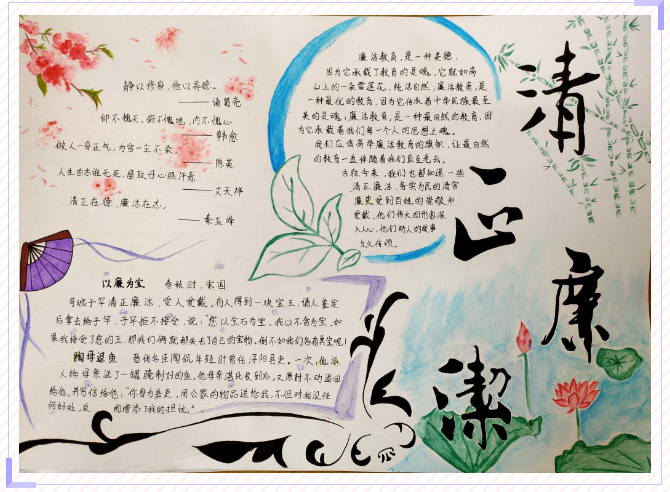 静以修身，俭以养德。
——诸葛亮
仰不愧天，俯不愧地，内不愧心
——韩愈
做人一身正气，为官一尘不染。
——陈英
人生自古谁无死，留取丹心照汗青。
——文天祥
清正在德，廉洁在志。
廉洁教育，是一种美德，
因为它承载了教育的灵魂，它就如高
山上的一朵雪莲花，纯洁自然；廉洁教育，是
一种最优的教育，因为它传承着中华民族最至
美的灵魂；廉洁教育，是一种最自然的教育，因
为它承载着我们每一个人的思想之魂。
我们应该高举廉洁教育的旗帜，让最自然
的教育一直伴随着我们直至老去。
古往今来，我们也都知道一些
清正廉洁、务实为民的清官
廉吏受到百姓的崇敬和
爱戴，他们伟大的形象深
入人心，他们动人的故事
久久传颂。
清
正
廉
潔
以廉为宝 春秋时，宋国
司城子罕清正廉洁，受人爱戴。有人得到一块宝玉，请人鉴定
后拿去给子罕，子罕拒不接受，说："您以宝石为宝，我以不贪为宝。如
果我接受了您的玉，那我们俩就都失去了自己的宝物，倒不如我们各有其宝呢！
陶母退鱼 晋代名臣陶侃年轻时曾任浔阳县吏。一次，他派
人给母亲送了一罐腌制好的鱼。他母亲湛氏收到后，又原封不动退回
给他，并写信给他："你身为县吏，用公家的物品送给我，不但对我没任
何好处，反 而增添了我的担忧。"